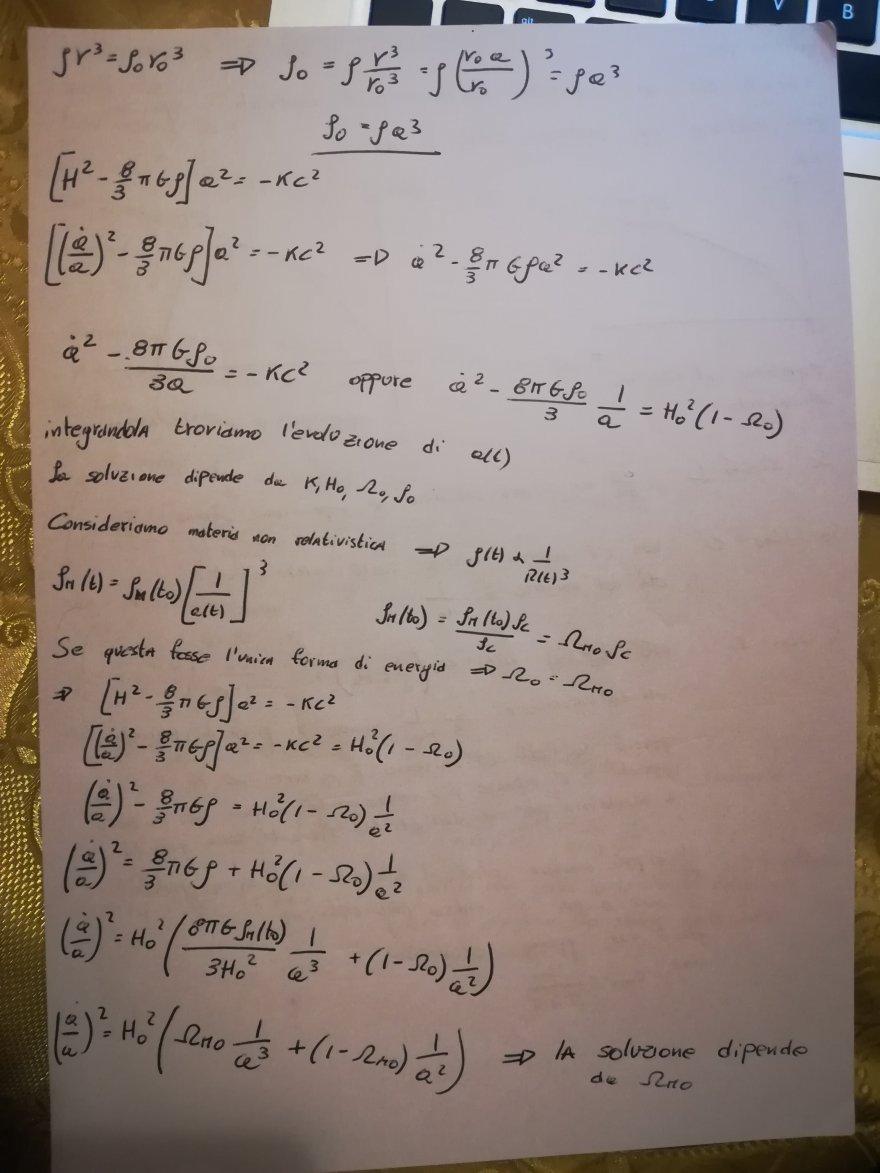 ρr³ = ρ₀r₀³ ⇒ ρ₀ = ρ r³/r₀³ = ρ (r₀a/r₀)³ = ρa³
ρ₀ = ρa³
[H² - 8/3 πGρ] a² = -Kc²
[(ȧ/a)² - 8/3 πGρ] a² = -Kc² ⇒ ȧ² - 8/3 π Gρa² = -Kc²
ȧ² - 8πGρ₀/3a = -Kc² oppure ȧ² - 8πGρ₀/3 1/a = H₀²(1 - Ω₀)
integrandola troviamo l'evoluzione di a(t)
La soluzione dipende da K, H₀, Ω₀, ρ₀
Consideriamo materia non relativistica ⇒ ρ(t) α 1/R(t)³
ρM(t) = ρM(t₀) [1/a(t)]³
ρM(t₀) = ρM(t₀) ρc/ρc = ΩM₀ ρc
Se questa fosse l'unica forma di energia ⇒ Ω₀ = ΩM₀
⇒ [H² - 8/3 πGρ] a² = -Kc²
[(ȧ/a)² - 8/3 πGρ] a² = -Kc² = H₀²(1 - Ω₀)
(ȧ/a)² - 8/3 πGρ = H₀²(1 - Ω₀) 1/a²
(ȧ/a)² = 8/3 πGρ + H₀²(1 - Ω₀) 1/a²
(ȧ/a)² = H₀² (8πGρM(t₀)/3H₀² 1/a³ + (1 - Ω₀) 1/a²)
(ȧ/a)² = H₀² (ΩM₀ 1/a³ + (1 - ΩM₀) 1/a²) ⇒ la soluzione dipende
da ΩM₀